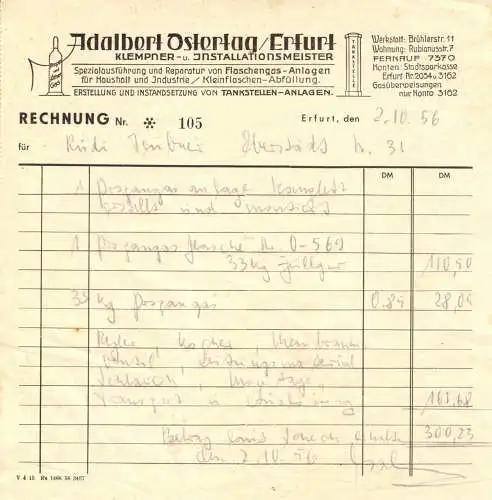 Propan und Butan Gas
Adalbert Ostertag / Erfurt
KLEMPNER- u. INSTALLATIONSMEISTER
Spezialausführung und Reparatur von Flaschengas-Anlagen
für Haushalt und Industrie / Kleinflaschen-Abfüllung.
ERSTELLUNG UND INSTANDSETZUNG VON TANKSTELLEN-ANLAGEN.
TANKSTELLE
Werkstatt: Brühlerstr. 11
Wohnung: Rubianusstr. 7
FERNRUF 7370
Konten: Stadtsparkasse
Erfurt Nr. 2034 u. 3162
Gasüberweisungen
nur Konto 3162
RECHNUNG Nr. ** 105 Erfurt, den 2.10.56
für Rudi N. 31
DM DM
1 komplett
und montiert
1 Propangasflasche Nr. 0-569
33 kg Füllgew 110,90
33 kg Propangas 0.89 28,05
Regler, Kocher, Membranen
Schlauch, Montage,
Transport u. 161,68
Betrag 300,23
den 2.10.56
V 4 15 Ra 1466 56 3487